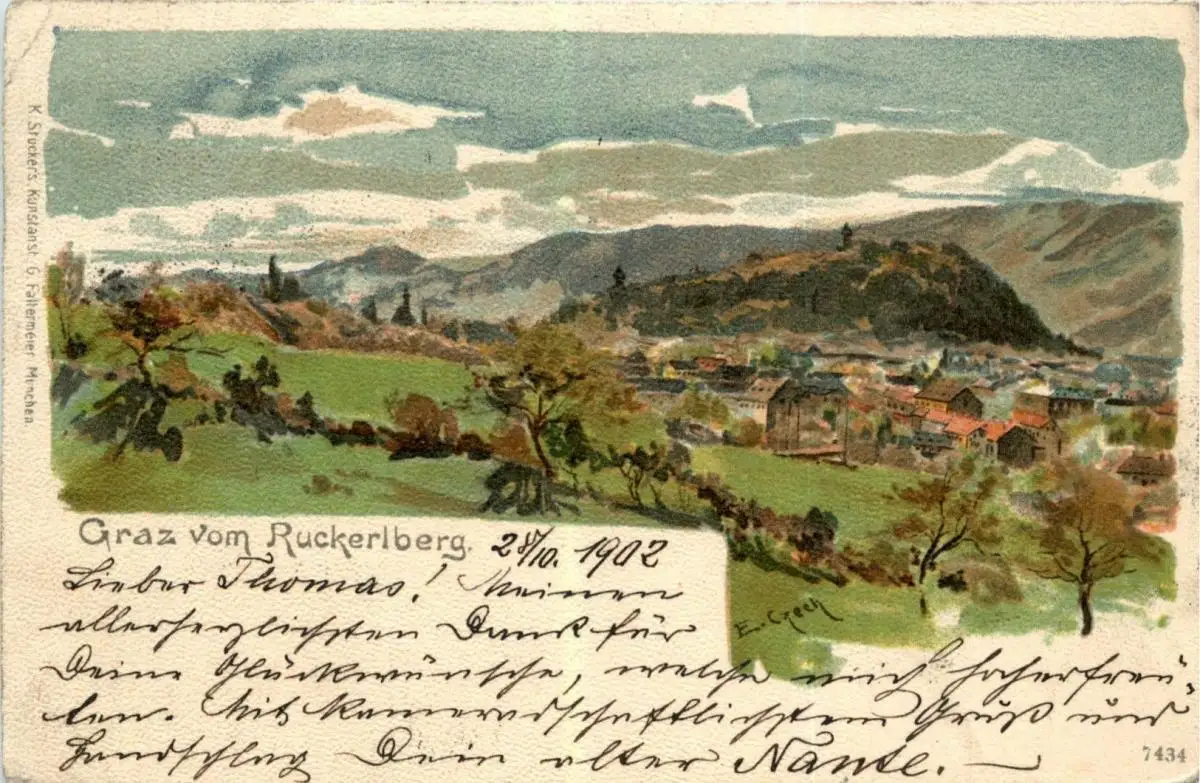 K. Stückers Kunstanst. G. Faltermeier München.
Graz vom Ruckerlberg. 28/10. 1902
Lieber Thomas! Meinen
allerherzlichsten Dank für
Deine Glückwünsche, welche mich hocherfreu-
ten. Mit kameradschaftlichstem Gruß und
Handschlag Dein alter Nante. —
E. Czech
7434